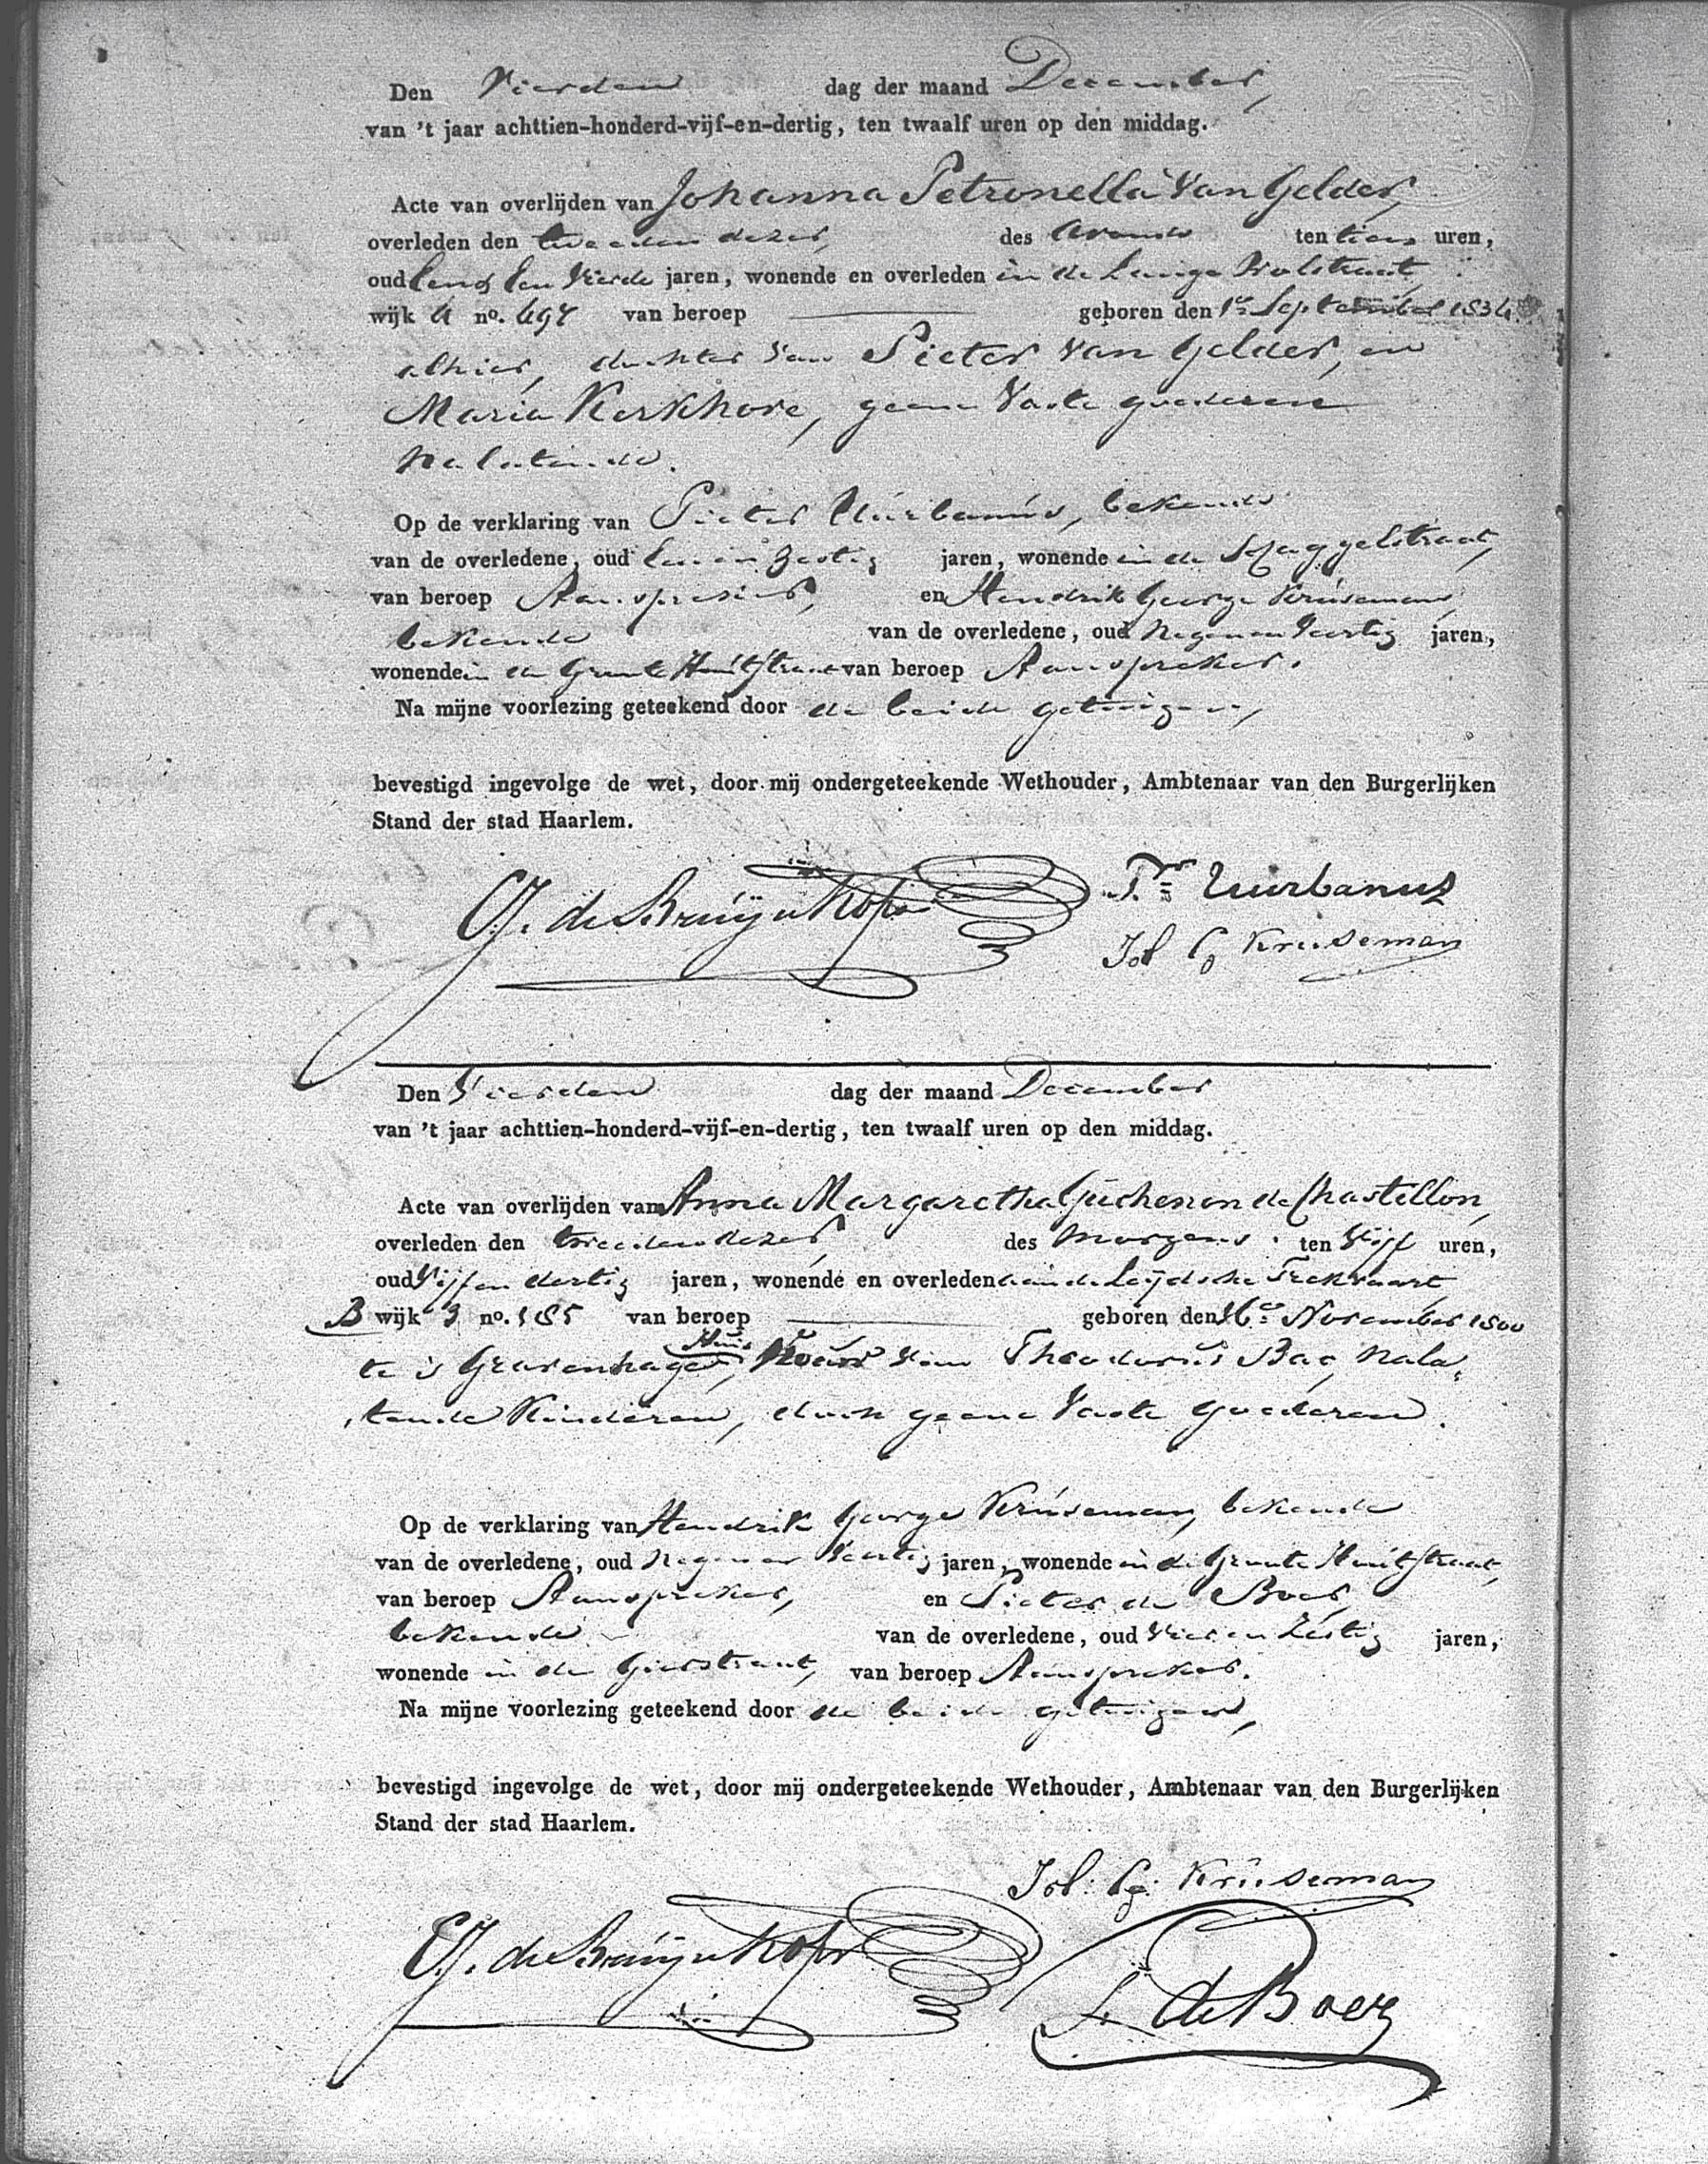 Den Vierden dag der maand December,
van 't jaar achttien-honderd-vijf-en-dertig, ten twaalf uren op den middag.
Acte van overlijden van Johanna Petronella Van Gelder,
overleden den tweeden dezer, des Avonds ten tien uren,
oud Een & Een Vierde jaren, wonende en overleden in de Lange straat
wijk 4 no. 497 van beroep geboren den 1e September 1834
alhier, dochter van Pieter Van Gelder, en
Maria Kerkhove, geene Vaste goederen
nalatende.
Op de verklaring van Pieter Uurbanus, bekende
van de overledene, oud Een en Zestig jaren, wonende in de Schaggelstraat,
van beroep Aanspreker, en Hendrik George Kruseman,
bekende van de overledene, oud Negen en Veertig jaren,
wonende in de Groote Houtstraat van beroep Aanspreker.
Na mijne voorlezing geteekend door de beide getuigen,
bevestigd ingevolge de wet, door mij ondergeteekende Wethouder, Ambtenaar van den Burgerlijken
Stand der stad Haarlem.
CJ. de Bruijn Kops Pr. Uurbanus
Kruseman
Den Vierden dag der maand December
van 't jaar achttien-honderd-vijf-en-dertig, ten twaalf uren op den middag.
Acte van overlijden van Anna Margaretha Guichenon de Chastellon,
overleden den tweeden dezer, des Morgens ten Vijf uren,
oud Vijf en dertig jaren, wonende en overleden aan de Leijdsche Trekvaart,
B wijk 3 no. 185 van beroep geboren den 16e November 1800
te 's Gravenhage, Huisvrouw van Theodorus Bac, nala-
tende Kinderen, doch geene Vaste goederen.
Op de verklaring van Hendrik George Kruseman, bekende
van de overledene, oud Negen en Veertig jaren, wonende in de Groote Houtstraat,
van beroep Aanspreker, en Pieter de Boer,
bekende van de overledene, oud Vier en Zestig jaren,
wonende in de Gierstraat, van beroep Aanspreker.
Na mijne voorlezing geteekend door de beide getuigen,
bevestigd ingevolge de wet, door mij ondergeteekende Wethouder, Ambtenaar van den Burgerlijken
Stand der stad Haarlem.
Kruseman
CJ. de Bruijn Kops de Boer